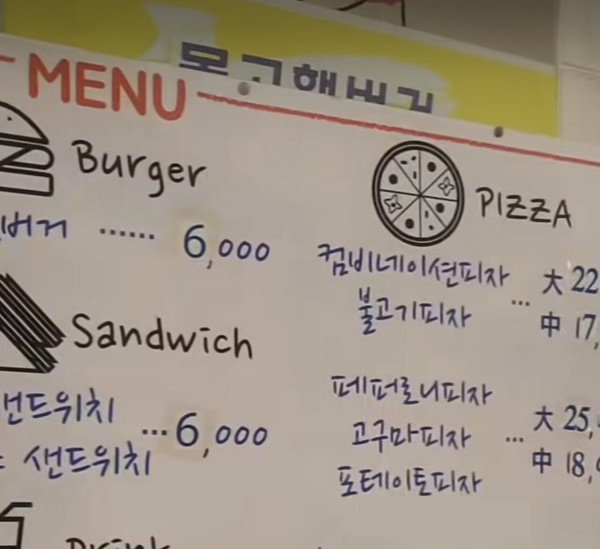 MENU
Burger
버거 ...... 6,000
Sandwich
샌드위치
샌드위치
... 6,000
PIZZA
컴비네이션피자
불고기피자
... 大 22
中 17,
페퍼로니피자
고구마피자
포테이토피자
... 大 25,
中 18,